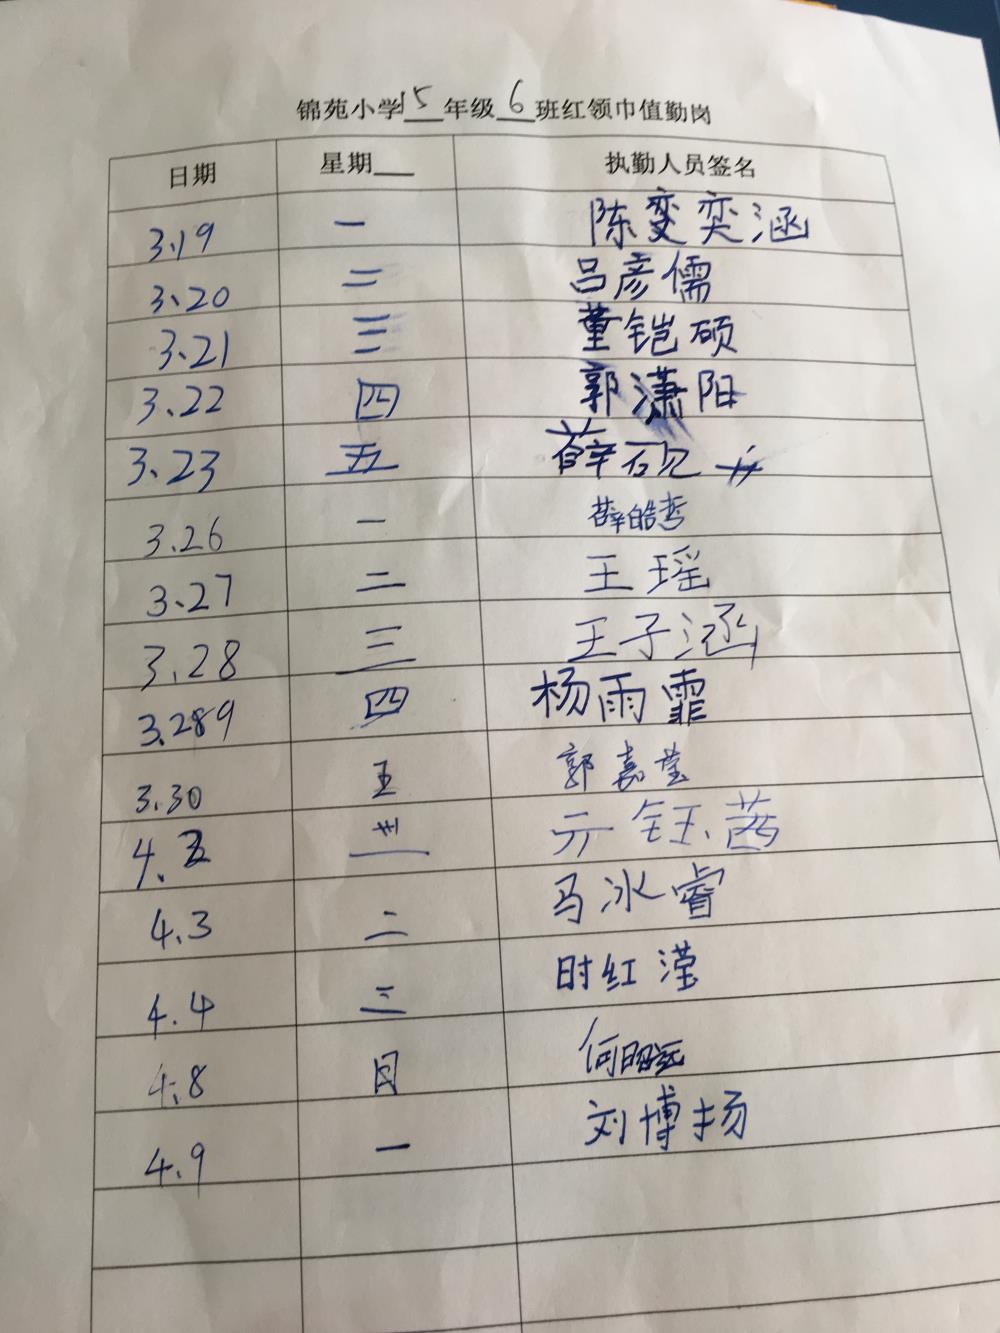 锦苑小学15年级6班红领巾值勤岗
日期 星期 执勤人员签名
3.19 一 陈变奕涵
3.20 二 吕彦儒
3.21 三 董铠硕
3.22 四 郭潇阳
3.23 五 薛砚
3.26 一 薛皓哲
3.27 二 王瑶
3.28 三 王子涵
3.289 四 杨雨霏
3.30 五 郭嘉莹
4. 亓钰茜
4.3 二 马冰睿
4.4 三 时红滢
4.8 日 何
4.9 一 刘博扬